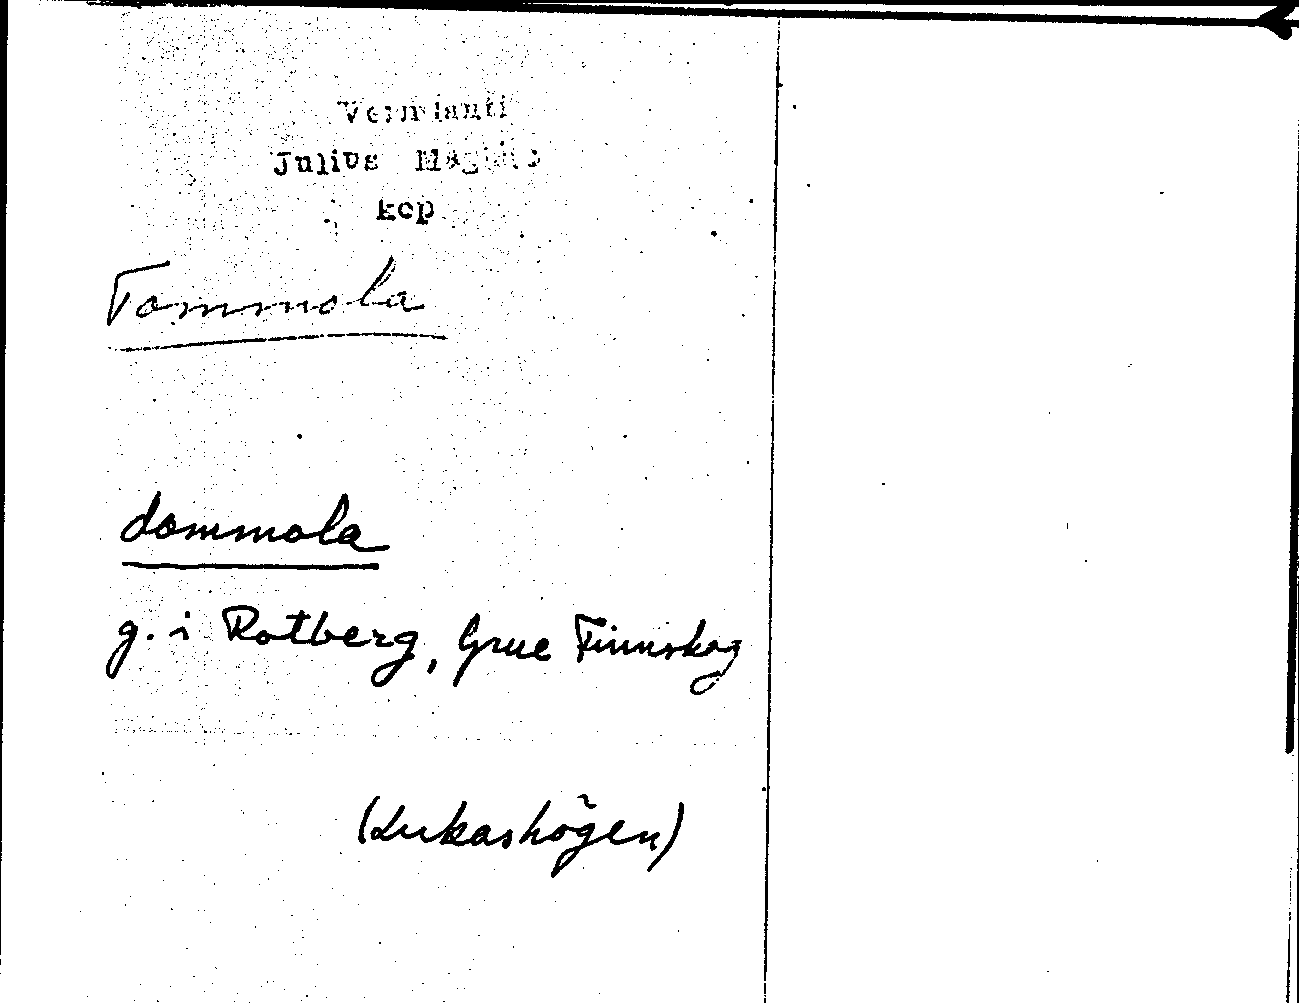 Vermlanti
Julius Mägiste
kop
Tommola
dommola
g. i Rotberg, Grue Finnskog
(Lukashögen)